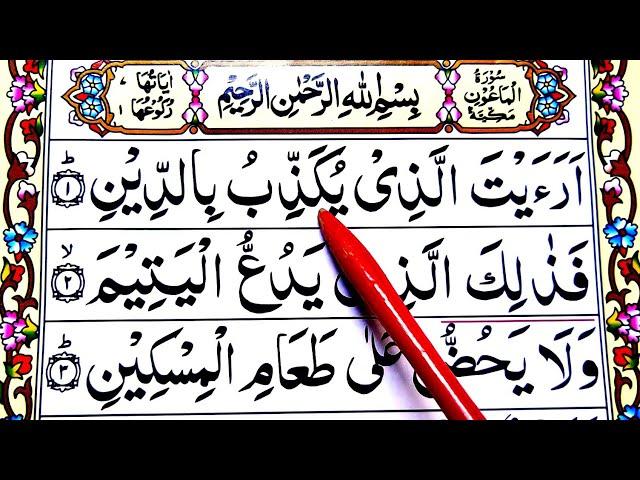 سُوْرَةُ الْمَاعُوْنِ مَكِّيَّةٌ
بِسْمِ اللهِ الرَّحْمٰنِ الرَّحِيْمِ
اٰيَاتُهَا ،
رُكُوْعُهَا ١
اَرَءَيْتَ الَّذِىْ يُكَذِّبُ بِالدِّيْنِ ؕ‏ ﴿١﴾
فَذٰلِكَ الَّذِىْ يَدُعُّ الْيَتِيْمَ ۙ‏ ﴿٢﴾
وَلَا يَحُضُّ عَلٰى طَعَامِ الْمِسْكِيْنِ ؕ‏ ﴿٣﴾